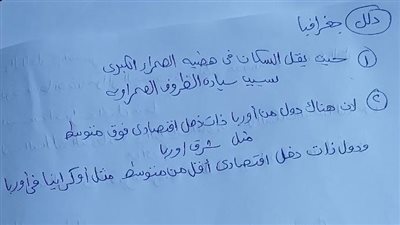 دلل جغرافيا
① حيث يقل السكان فى هضبه الصحراء الكبرى
بسبب سيادة الظروف الصحراويه
② لان هناك دول من أوربا ذات دخل اقتصادى فوق متوسط
مثل شرق اوربا
ودول ذات دخل اقتصادى أقل من متوسط مثل أوكرانيا فى أوربا